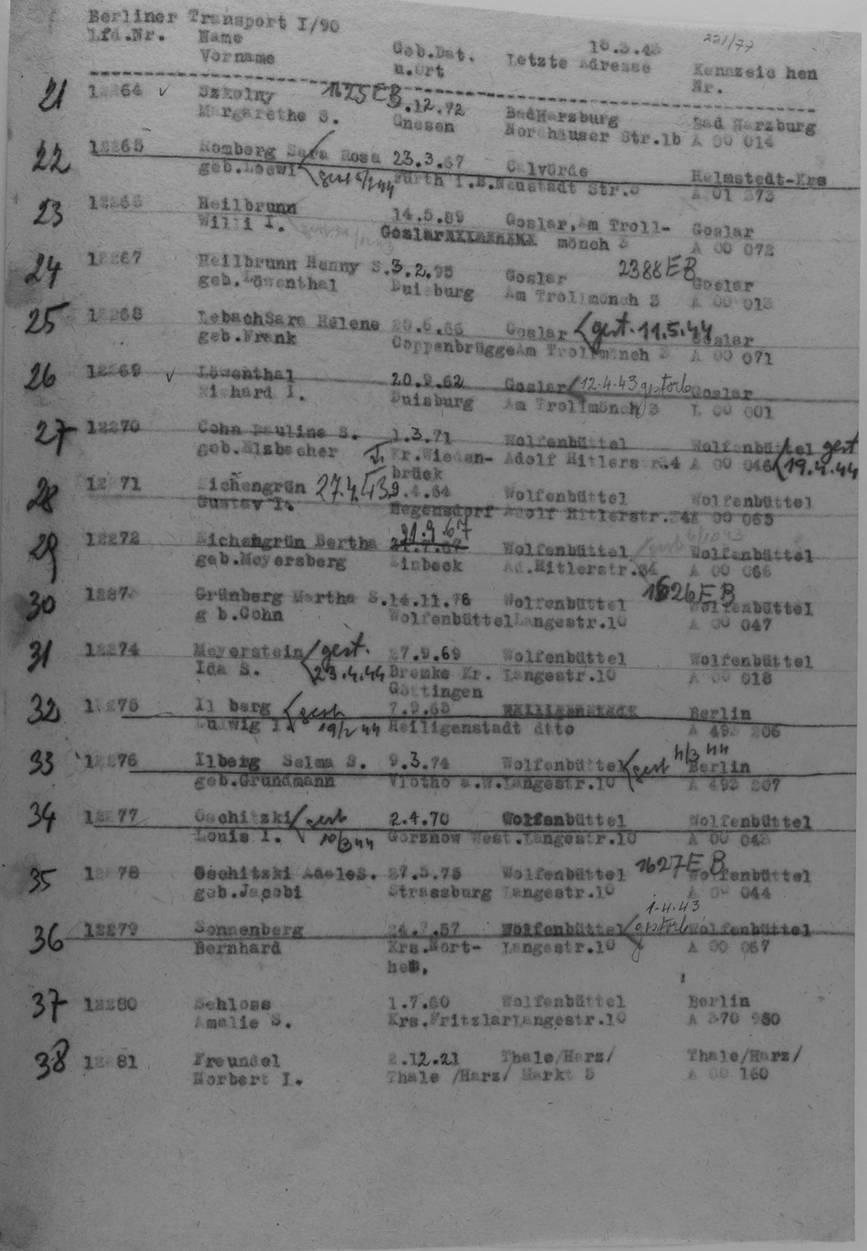 Berliner Transport I/90
Lfd.Nr. Name Geb.Dat. Letzte Adresse 16.3.43 Kennzeic hen 221/77
Vorname u.Ort Nr.
21 12264 √ Szkolny 1625EB .12.72 BadHarzburg Bad Harzburg
Margarethe S. Gnesen Nordhäuser Str.1b A 00 014
22 12265 Romberg Sara Rosa 23.3.67 Calvörde Helmstedt-Krs
geb.Loewi gest Fürth i.B.Neustadt Str. A 01 373
23 12266 Heilbrunn 14.5.89 Goslar,Am Troll- Goslar
Willi I. Goslar mönch 3 A 00 072
24 12267 Heilbrunn Henny S.3.2.95 Goslar 2388EB Goslar
geb.Löwenthal Duisburg Am Trollmönch 3 A 00 013
25 12268 LebachSara Helene 20.6.66 Goslar gest. 11.5.44 Goslar
geb.Frank CoppenbrüggeAm Trollmönch 3 A 00 071
26 12269 √ Löwenthal 20.9.62 Goslar 12.4.43 gestorb Goslar
Richard I. Duisburg Am Trollmönch 3 L 00 001
27 12270 Cohn Pauline S. 1.3.71 Wolfenbüttel Wolfenbüttel gest
geb.Elzbacher Kr.Wieden- Adolf Hitlerstr.4 A 00 046 19.4.44
brück
28 12271 Eichengrün 27.4.43 9.4.64 Wolfenbüttel Wolfenbüttel
Gustav I. Hegensdorf Adolf Hitlerstr. A 00 065
29 12272 Eichengrün Bertha 21.9.67 Wolfenbüttel Wolfenbüttel
geb.Meyersberg Einbeck Ad.Hitlerstr. A 00 066
30 1227 Grünberg Martha S.14.11.76 Wolfenbüttel 1626EB Wolfenbüttel
g b.Cohn WolfenbüttelLangestr.10 A 00 047
31 12274 Meyerstein gest. 27.9.69 Wolfenbüttel Wolfenbüttel
Ida S. 23.4.44 Bremke Kr. Langestr.10 A 00 018
Göttingen
32 12275 Il berg gest 7.9.65 Berlin
Ludwig I. 19/2 44 Heiligenstadt dtto A 493 206
33 12276 Ilberg Selma S. 9.3.74 Wolfenbüttel gest 4/3 44 Berlin
geb.Grundmann Vlotho a.W.Langestr.10 A 493 207
34 12277 Oschitzki gest 2.4.70 Wolfenbüttel Wolfenbüttel
Louis I. 10/3 44 Gorznow West.Langestr.10 A 00 043
35 12278 Oschitzki AdeleS. 27.5.75 Wolfenbüttel 1627EB Wolfenbüttel
geb.Jacobi Strassburg Langestr.10 A 00 044
36 12279 Sonnenberg 24.7.57 Wolfenbüttel 1.4.43 gestorb Wolfenbüttel
Bernhard Krs.Nort- Langestr.10 A 00 067
heim.
37 12280 Schloss 1.7.60 Wolfenbüttel Berlin
Amalie S. Krs.FritzlarLangestr.10 A 370 980
38 12281 Freundel 2.12.21 Thale/Harz/ Thale/Harz/
Norbert I. Thale /Harz/ Markt 5 A 00 160